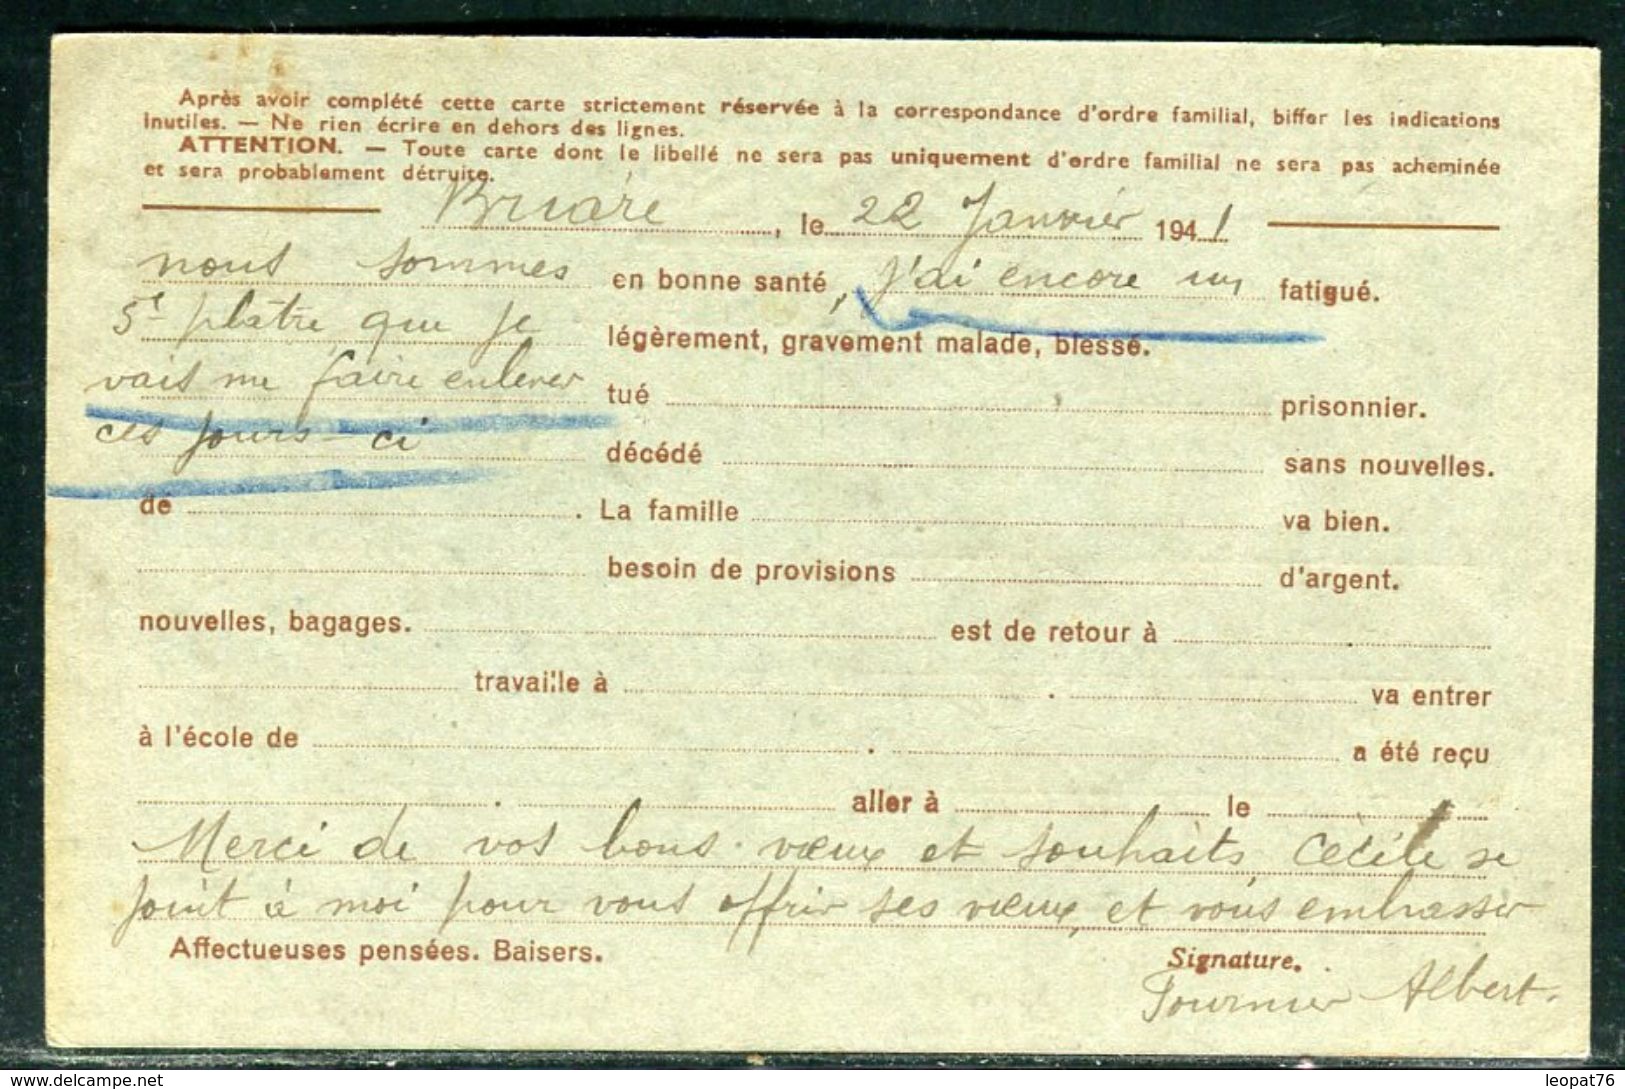 Après avoir complété cette carte strictement réservée à la correspondance d'ordre familial, biffer les indications
inutiles. — Ne rien écrire en dehors des lignes.
ATTENTION. — Toute carte dont le libellé ne sera pas uniquement d'ordre familial ne sera pas acheminée
et sera probablement détruite.
Briare, le 22 Janvier 1941
nous sommes en bonne santé, j'ai encore un fatigué.
5e plâtre que je légèrement, gravement malade, blessé.
vais me faire enlever tué prisonnier.
ces jours-ci décédé sans nouvelles.
de . La famille va bien.
besoin de provisions d'argent.
nouvelles, bagages. est de retour à
travaille à . va entrer
à l'école de . a été reçu
. aller à le
Merci de vos bons vœux et souhaits Cécile se
joint à moi pour vous offrir ses vœux, et vous embrasser
Affectueuses pensées. Baisers. Signature.
Fournier Albert.
leopat76